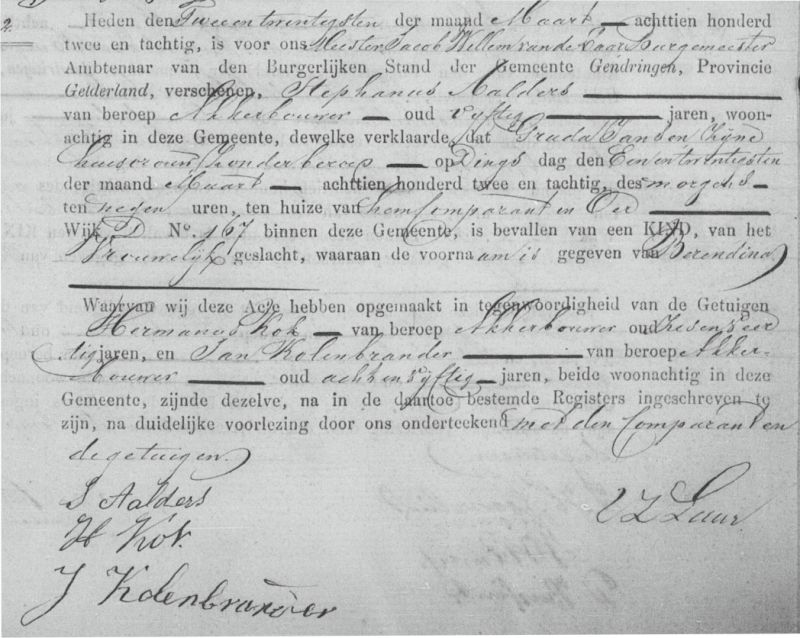 2.
Heden den Twee en twintigsten der maand Maart achttien honderd
twee en tachtig, is voor ons Meester Jacob Willem van de Laar Burgemeester
Ambtenaar van den Burgerlijken Stand der Gemeente Gendringen, Provincie
Gelderland, verschenen, Stephanus Aalders
van beroep Akkerbouwer oud vijftig jaren, woon-
achtig in deze Gemeente, dewelke verklaarde, dat Gruda Jansen zijne
huisvrouw zonder beroep op Dings dag den Een en twintigsten
der maand Maart achttien honderd twee en tachtig, des morgens
ten negen uren, ten huize van hem Comparant in Oer
Wijk D No. 167 binnen deze Gemeente, is bevallen van een KIND, van het
Vrouwelijk geslacht, waaraan de voorna am is gegeven van Berendina
Waarvan wij deze Acte hebben opgemaakt in tegenwoordigheid van de Getuigen
Hermanus Kok van beroep Akkerbouwer oud zes en veer
tig jaren, en Jan Kolenbrander van beroep Akker-
bouwer oud acht en vijftig jaren, beide woonachtig in deze
Gemeente, zijnde dezelve, na in de daartoe bestemde Registers ingeschreven te
zijn, na duidelijke voorlezing door ons onderteekend met den Comparant en
de getuigen.
S Aalders
H Kok.
J Kolenbrander
Laar